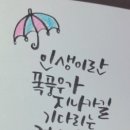 인생이란
폭풍우가
지나가길
기다리는